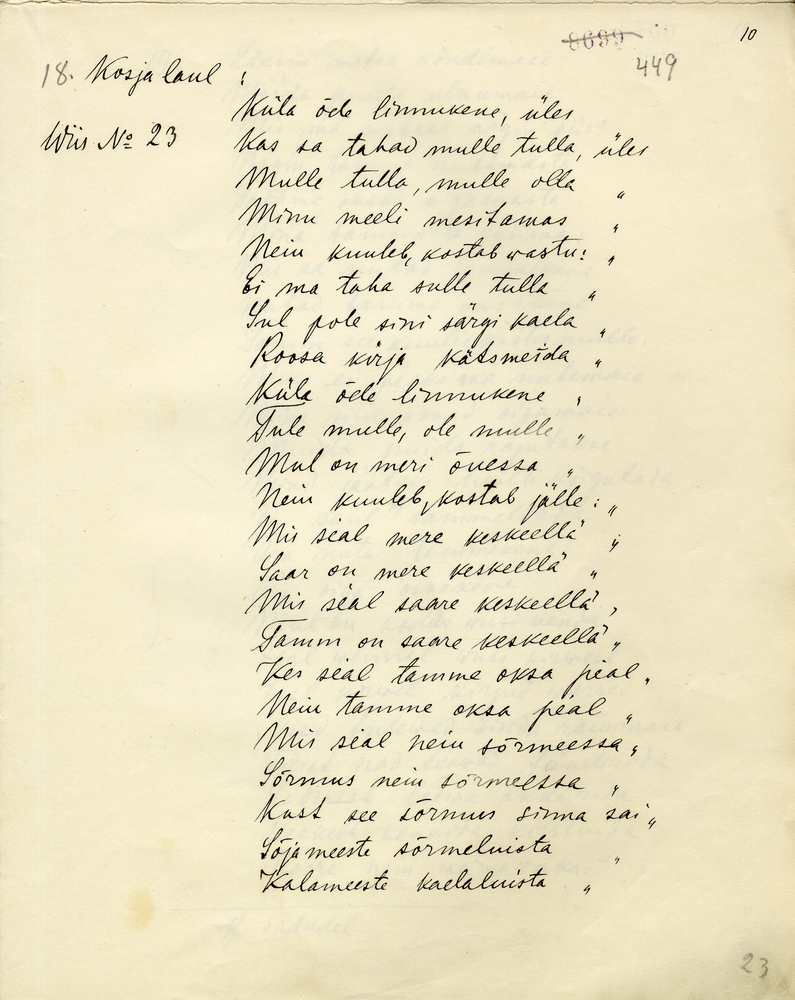 8699
10
449
18. Kosja laul :
Wiis № 23
Küla õde linnukene, üles
Kas sa tahad mulle tulla, üles
Mulle tulla, mulle olla "
Minu meeli mesitamas "
Nein kuuleb, kostab wastu: "
Ei ma taha sulle tulla "
Sul pole sini särgi kaela "
Roosa kirja kätsmeida "
Küla õde linnukene "
Tule mulle, ole mulle "
Mul on meri õuessa "
Nein kuuleb, kostab jälle : "
Mis séal mere keskeellä "
Saar on mere keskeellä "
Mis séal saare keskeellä "
Tamm on saare keskeellä "
Kes séal tamme oksa péal "
Nein tamme oksa péal "
Mis séal nein sõrmeessa "
Sõrmus nein sõrmeessa "
Kust see sõrmus sinna sai "
Sõjameeste sõrmeluista "
Kalameeste kaelaluista "
23